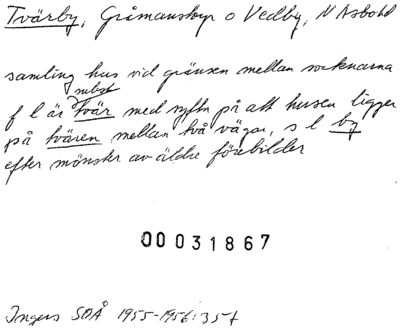 Tvärby, Gråmanstorp o Vedby, N Åsbohd
samling hus vid gränsen mellan socknarna
subst
f l är tvär med syftn på att husen ligger
på tvären mellan två vägar, s l by
efter mönster av äldre förebilder
00031867
Ingers SOÅ 1955-1956:35f